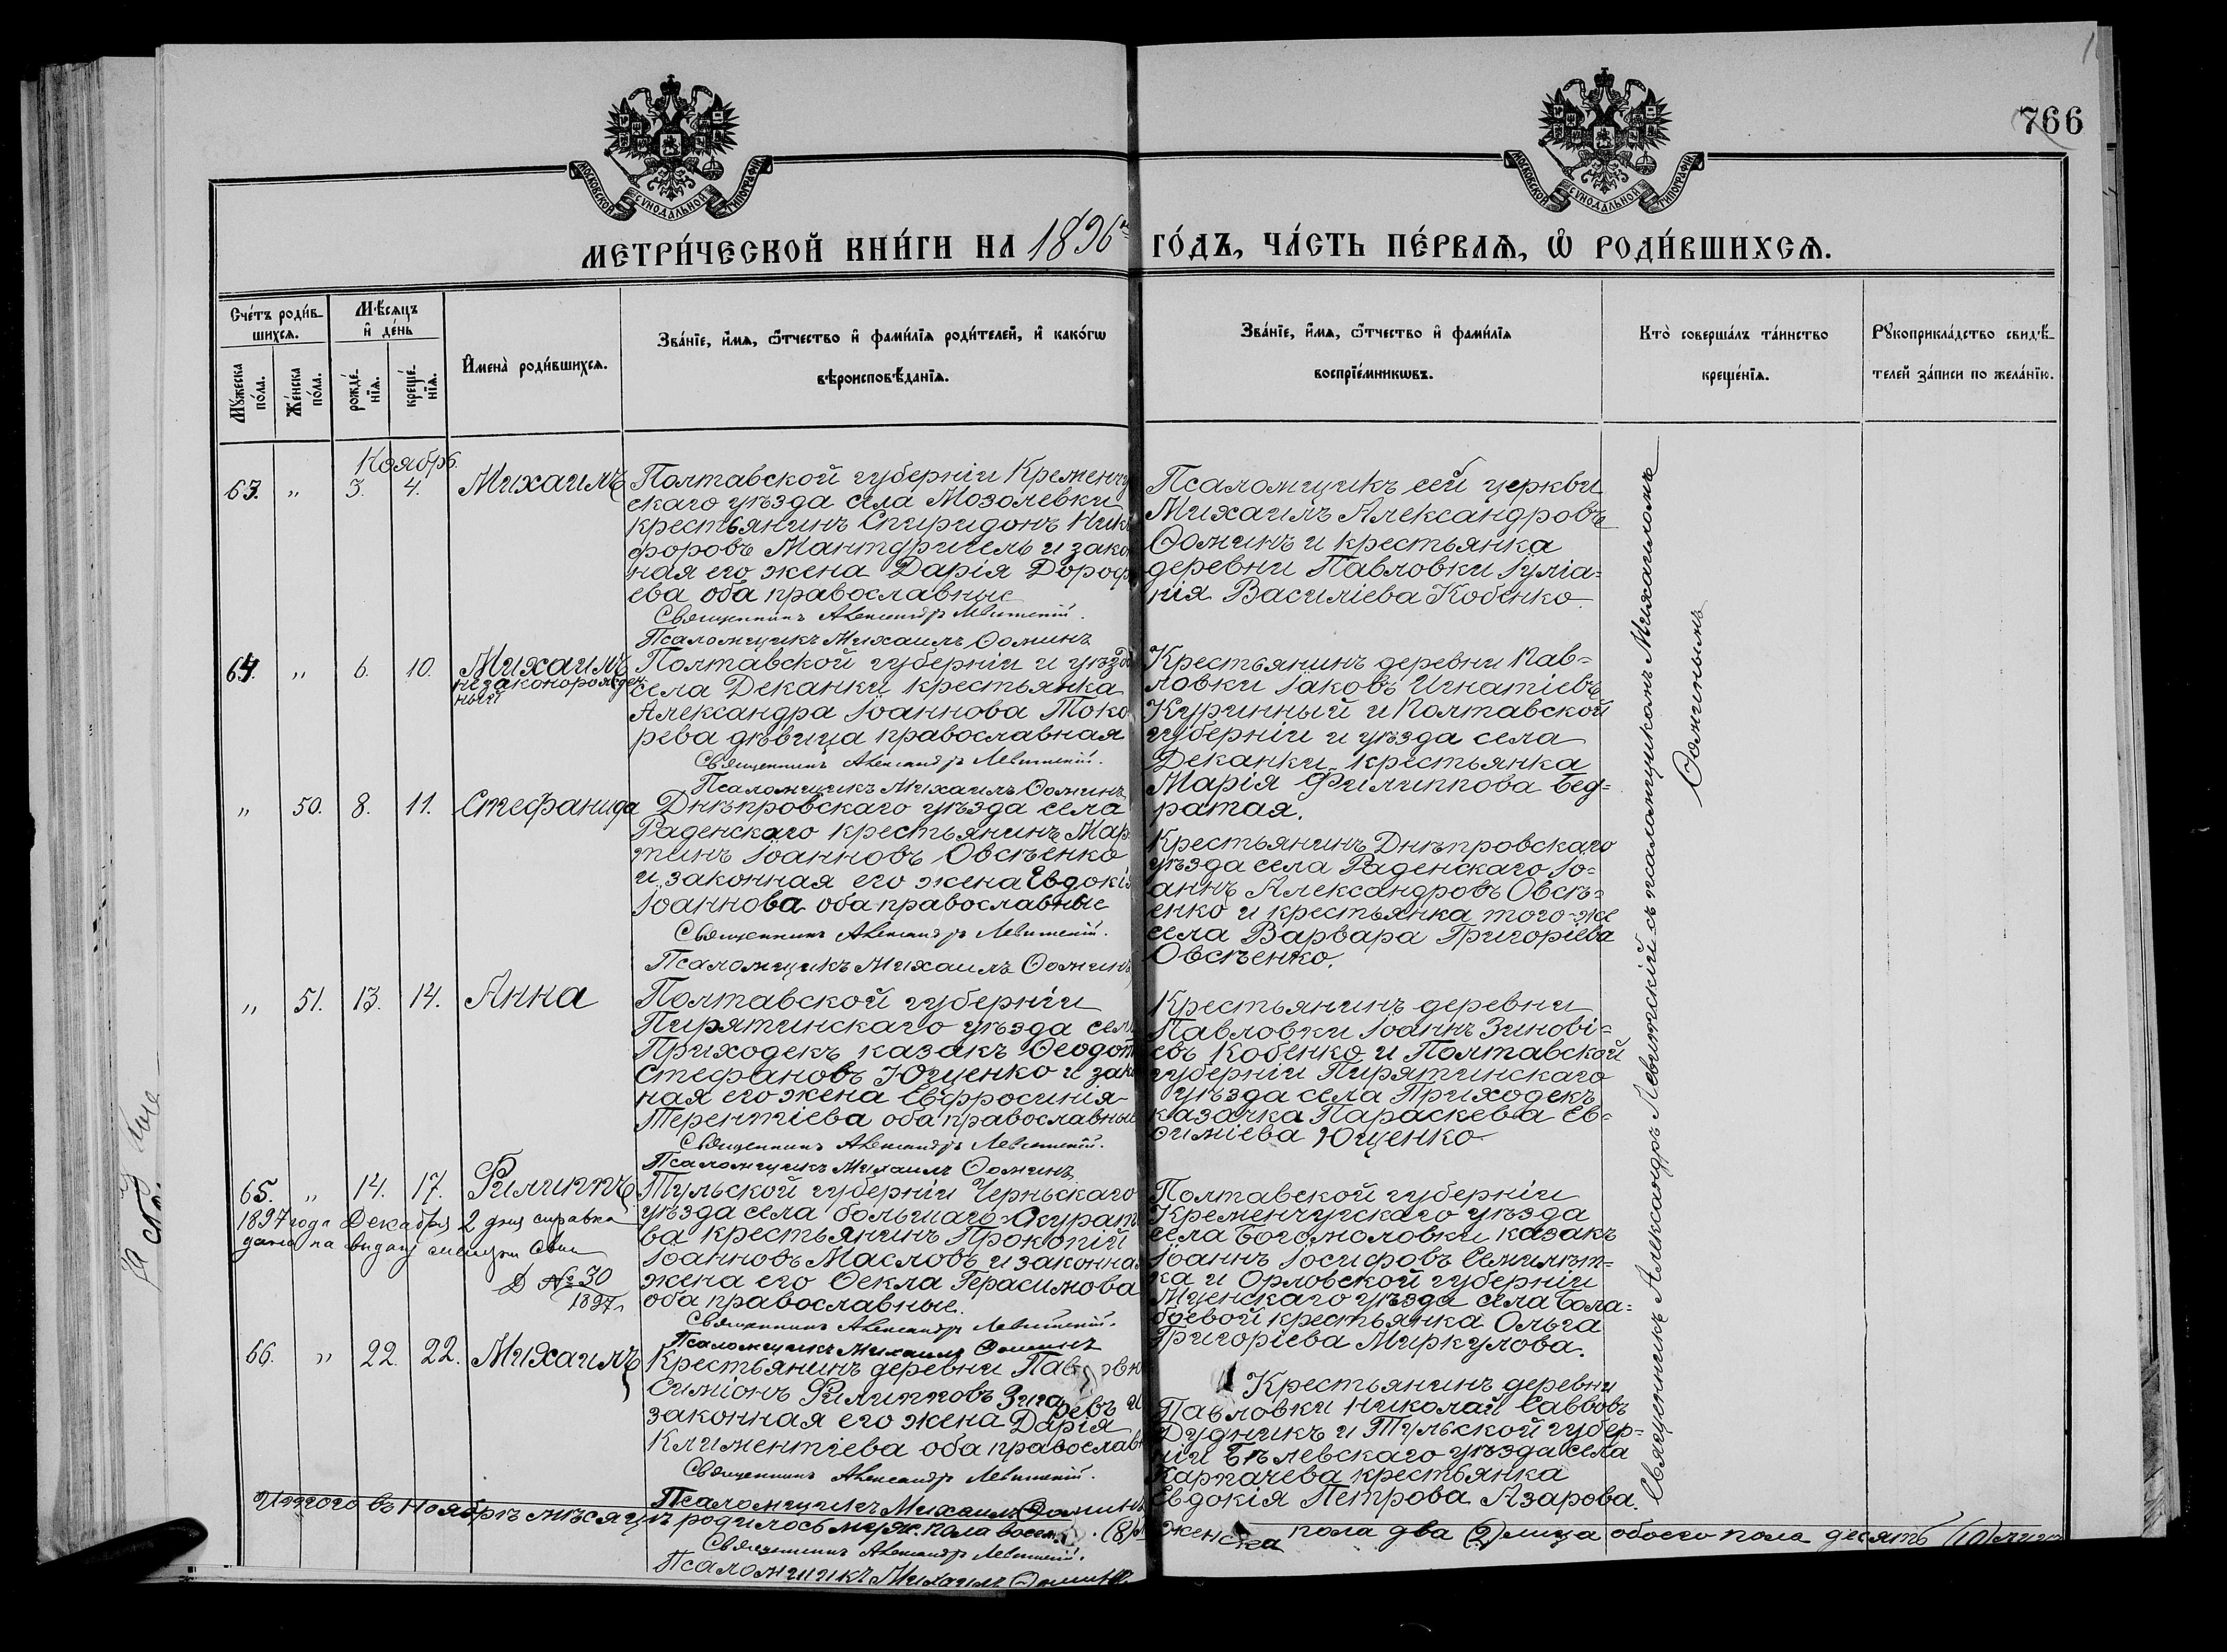 766
МОСКОВСКОЙ СѴНОДАЛЬНОЙ ТИПОГРАФІИ
МОСКОВСКОЙ СѴНОДАЛЬНОЙ ТИПОГРАФІИ
МЕТРИ́ЧЕСКОЙ КНИ́ГИ НА 1896 ГО́ДЪ, ЧА́СТЬ ПЕ́РВАѦ, Ѡ҆ РОДИ́ВШИХСѦ.
Сче́тъ роди́в-
шихсѧ.
Мꙋ́жеска
по́ла.
Же́нска
по́ла.
Мѣ́сѧцъ
и҆ де́нь
рожде́-
нїѧ.
креще́-
нїѧ.
И҆мена̀ роди́вшихсѧ.
Зва́нїе, и҆́мѧ, ѻ҆́тчество и҆ фами́лїѧ роди́телей, и҆ како́гѡ
вѣроисповѣ́данїѧ.
Зва́нїе, и҆́мѧ, ѻ҆́тчество и҆ фами́лїѧ
воспрїе́мникѡвъ.
Кто̀ соверша́лъ та́инство
креще́нїѧ.
Рꙋкоприкла́дство свидѣ́-
телей за́писи по жела́нїю.
Ноябрь.
63. " 3. 4. Михаилъ
Полтавской губерніи Кременчу
скаго уѣзда села Мозолевки
крестьянинъ Спиридонъ Ники
форовъ Мантдригель и закон
ная его жена Дарія Дороф
ева оба православные
Священникъ Александръ Левитскій.
Псаломщикъ Михаилъ Ѳоминъ
Псаломщикъ сей церкви
Михаилъ Александровъ
Ѳоминъ и крестьянка
деревни Павловки Іуліа=
нія Василіева Кобенко.
64. " 6. 10. Михаилъ
незаконорожден
ный
Полтавской губерніи и уѣзда
села Деканки крестьянка
Александра Іоаннова Токо
рева дѣвица православная
Священникъ Александръ Левитскій.
Псаломщикъ Михаилъ Ѳоминъ
Крестьянинъ деревни Пав=
ловки Іаковъ Игнатіевъ
Куринный и Полтавской
губерніи и уѣзда села
Деканки крестьянка
Марія Филиппова Бед=
ратая.
" 50. 8. 11. Стефанида
Днѣпровскаго уѣзда села
Раденскаго крестьянинъ Мар
тинъ Іоанновъ Овсѣенко
и законная его жена Евдокія
Іоаннова оба православные
Священникъ Александръ Левитскій.
Псаломщикъ Михаилъ Ѳоминъ
Крестьянинъ Днѣпровскаго
уѣзда села Раденскаго Іо=
аннъ Александровъ Овсѣ=
енко и крестьянка того-же
села Варвара Григоріева
Овсѣенко.
" 51. 13. 14. Анна
Полтавской губерніи
Пирятинскаго уѣзда села
Приходекъ казакъ Ѳеодот
Стефановъ Ющенко и закон
ная его жена Евфросинія
Терентіева оба православные
Священникъ Александръ Левитскій.
Псаломщикъ Михаилъ Ѳоминъ
Крестьянинъ деревни
Павловки Іоаннъ Зинові=
евъ Кобенко и Полтавской
губерніи Пирятинскаго
уѣзда села Приходекъ
казачка Параскева Ев=
ѳиміева Ющенко
65. " 14. 17. Филиппъ
1897 года Декабря 2 дня справка
дана на выдачу
№ 30
1897 г.
Тульской губерніи Черньскаго
уѣзда села Большаго-Скурат
ва крестьянинъ Прокопій
Іоанновъ Масловъ и законная
жена его Ѳекла Герасимова
оба православные.
Священникъ Александръ Левитскій.
Псаломщикъ Михаилъ Ѳоминъ
Полтавской губерніи
Кременчугскаго уѣзда
села Богомоловки казакъ
Іоаннъ Іосифовъ Семилѣт=
ка и Орловской губерніи
Мценскаго уѣзда села Бола=
боевой крестьянка Ольга
Григоріева Миркулова.
66. " 22. 22. Михаилъ
Крестьянинъ деревни Павловки
Симіонъ Филипповъ Зигаревъ и
законная его жена Дарія
Климентіева оба православн
Священникъ Александръ Левитскій.
Псаломщикъ Михаилъ Ѳоминъ
Крестьянинъ деревни
Павловки Николай Саввовъ
Дудникъ и Тульской губер=
ніи Бѣлевскаго уѣзда села
Карпачева крестьянка
Евдокія Петрова Азарова.
Священникъ Александръ Левитскій съ псаломщикомъ Михаиломъ
Ѳоминымъ
Итого въ Ноябрѣ мѣсяцѣ родилось муж. пола восемь (8) женска пола два (2) лица обоего пола десять (10) лицъ
Священникъ Александръ Левитскій.
Псаломщикъ Михаилъ Ѳоминъ